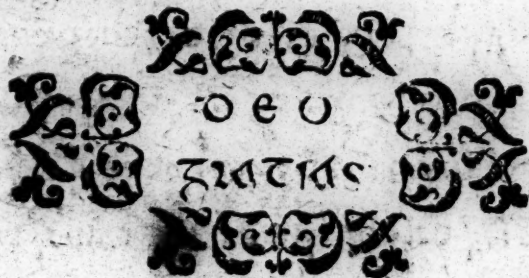 Deo
gratias